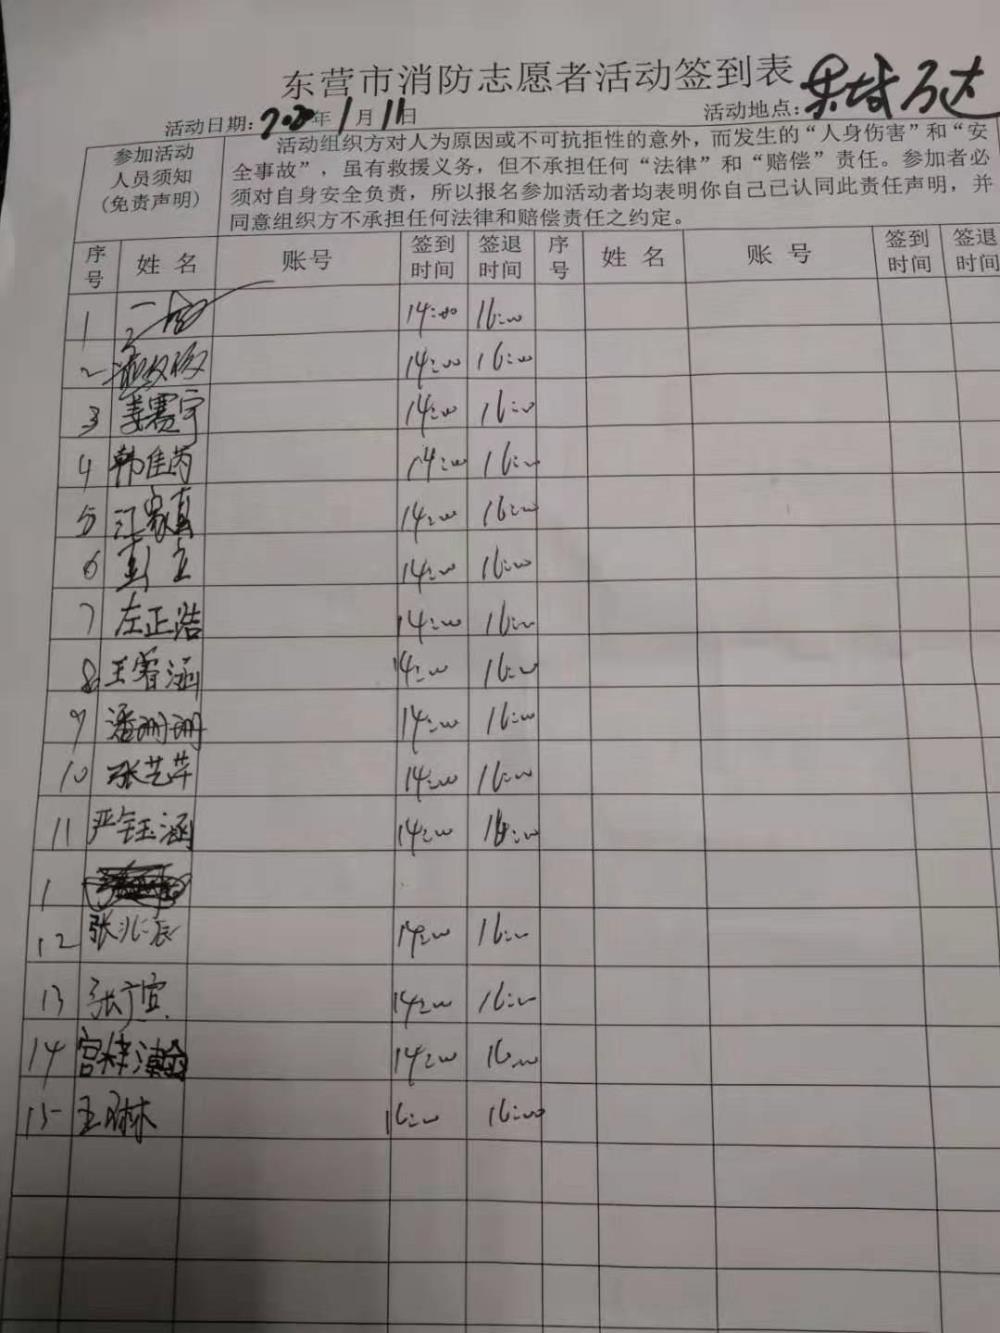 东营市消防志愿者活动签到表
活动日期：2020年1月11日 活动地点：东城万达
参加活动
人员须知
(免责声明)
活动组织方对人为原因或不可抗拒性的意外，而发生的“人身伤害”和“安
全事故”，虽有救援义务，但不承担任何“法律”和“赔偿”责任。参加者必
须对自身安全负责，所以报名参加活动者均表明你自己已认同此责任声明，并
同意组织方不承担任何法律和赔偿责任之约定。
序号 姓名 账号 签到时间 签退时间 序号 姓名 账号 签到时间 签退时间
1 14:00 16:00
2 14:00 16:00
3 姜赛宇 14:00 16:00
4 韩佳芮 14:00 16:00
5 江家真 14:00 16:00
6 彭立 14:00 16:00
7 左正浩 14:00 16:00
8 王睿涵 14:00 16:00
9 潘珊珊 14:00 16:00
10 张艺萍 14:00 16:00
11 严钰涵 14:00 16:00
1
12 张兆辰 14:00 16:00
13 张广宜 14:00 16:00
14 宫梓瀚 14:00 16:00
15 王琳 16:00 16:00